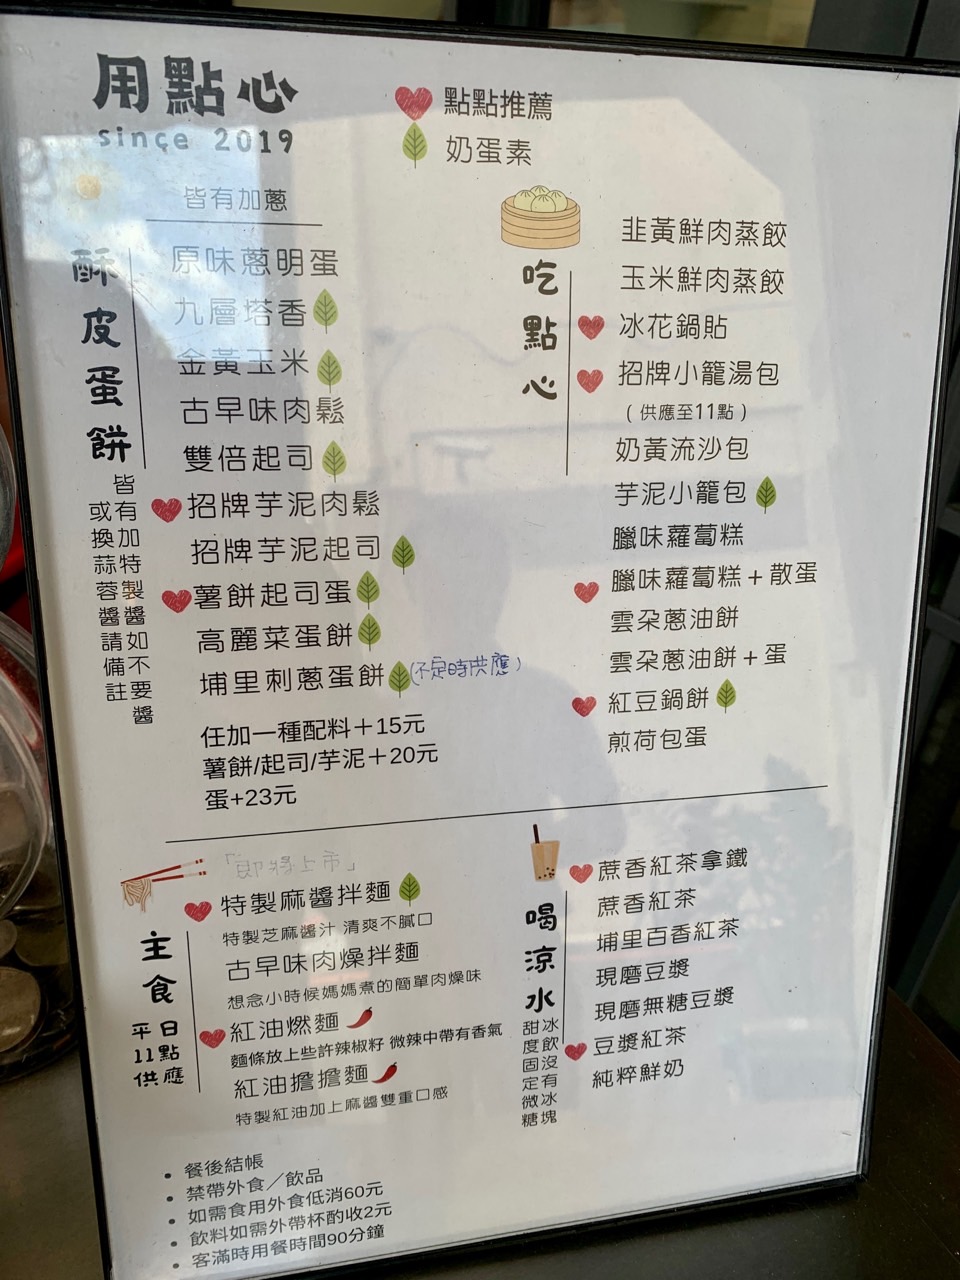 用點心
since 2019
點點推薦
奶蛋素
皆有加蔥
酥皮蛋餅
皆有加特製醬如不要醬
或換蒜蓉醬請備註
原味蔥明蛋
九層塔香
金黃玉米
古早味肉鬆
雙倍起司
招牌芋泥肉鬆
招牌芋泥起司
薯餅起司蛋
高麗菜蛋餅
埔里刺蔥蛋餅(不定時供應)
任加一種配料+15元
薯餅/起司/芋泥+20元
蛋+23元
吃點心
韭黃鮮肉蒸餃
玉米鮮肉蒸餃
冰花鍋貼
招牌小籠湯包
(供應至11點)
奶黃流沙包
芋泥小籠包
臘味蘿蔔糕
臘味蘿蔔糕+散蛋
雲朵蔥油餅
雲朵蔥油餅+蛋
紅豆鍋餅
煎荷包蛋
主食
平日
11點
供應
「即將上市」
特製麻醬拌麵
特製芝麻醬汁 清爽不膩口
古早味肉燥拌麵
想念小時候媽媽煮的簡單肉燥味
紅油燃麵
麵條放上些許辣椒籽 微辣中帶有香氣
紅油擔擔麵
特製紅油加上麻醬雙重口感
喝涼水
冰飲沒有冰塊
甜度固定微糖
蔗香紅茶拿鐵
蔗香紅茶
埔里百香紅茶
現磨豆漿
現磨無糖豆漿
豆漿紅茶
純粹鮮奶
• 餐後結帳
• 禁帶外食/飲品
• 如需食用外食低消60元
• 飲料如需外帶杯酌收2元
• 客滿時用餐時間90分鐘